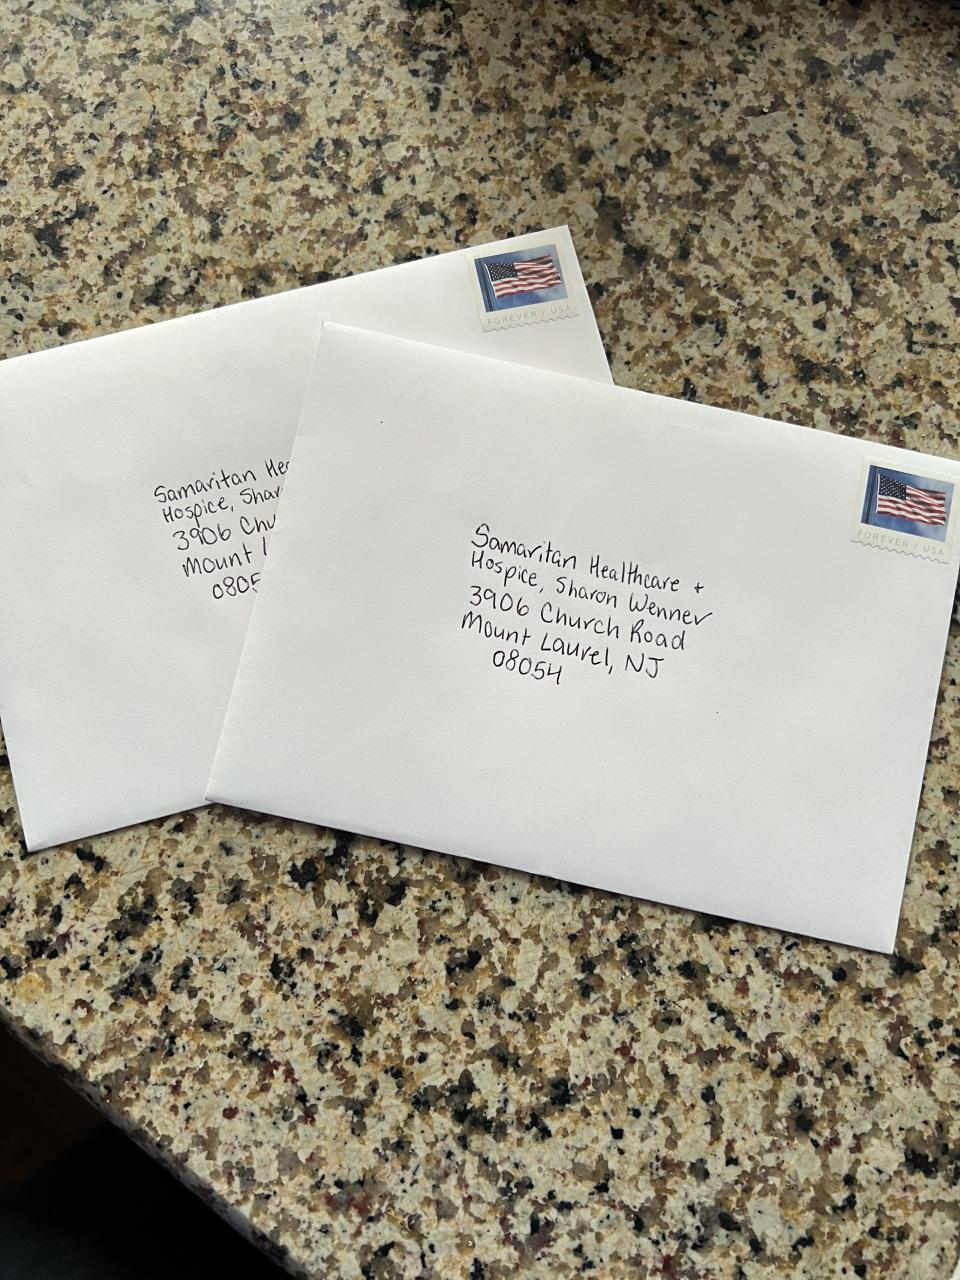 FOREVER / USA
Samaritan
Hospice,
3906
Mount
FOREVER / USA
Samaritan Healthcare +
Hospice, Sharon Wenner
3906 Church Road
Mount Laurel, NJ
08054